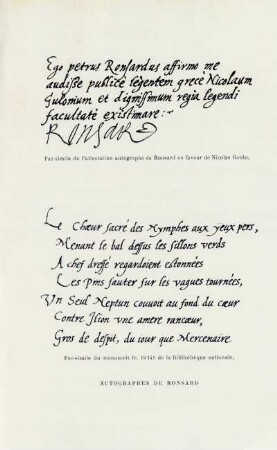 Ego petrus Ronsardus affirmo me
audisse publicè legentem grecè Nicolaum
Gulonium et dignissimum regia legendi
facultate existimare :~
RONSARD
Fac-similé de l'attestation autographe de Ronsard en faveur de Nicolas Goulu.
Le Chœur sacré des Nymphes aux yeux pers,
Menant le bal dessus les sillons verds
A chef dressé regardoient estonnées
Les Pins sauter sur les vagues tournées,
Un Seul Neptun couvoit au fond du cœur
Contre Ilion une amere rancœur,
Gros de despit, du iour que Mercenaire
Fac-similé du manuscrit fr. 19141 de la Bibliothèque nationale.
AUTOGRAPHES DE RONSARD